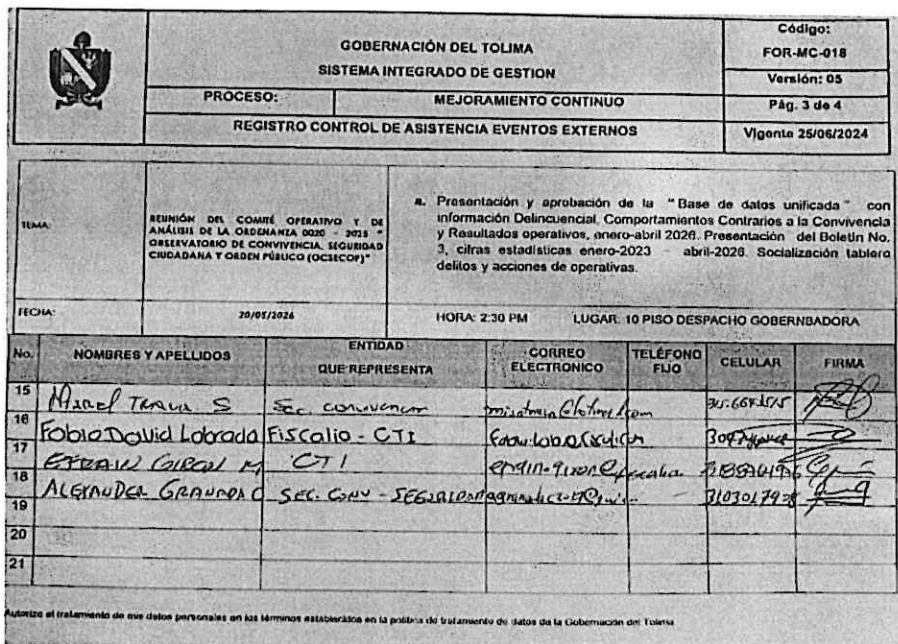 GOBERNACIÓN DEL TOLIMA
SISTEMA INTEGRADO DE GESTION
PROCESO: MEJORAMIENTO CONTINUO
REGISTRO CONTROL DE ASISTENCIA EVENTOS EXTERNOS
Código:
FOR-MC-018
Versión: 05
Pág. 3 de 4
Vigente 25/06/2024
TEMA:
REUNIÓN DEL COMITÉ OPERATIVO Y DE
ANÁLISIS DE LA ORDENANZA 0020 - 2025 "
OBSERVATORIO DE CONVIVENCIA, SEGURIDAD
CIUDADANA Y ORDEN PÚBLICO (OCSECOP)"
a. Presentación y aprobación de la "Base de datos unificada" con
información Delincuencial, Comportamientos Contrarios a la Convivencia
y Resultados operativos, enero-abril 2026. Presentación del Boletín No.
3, cifras estadísticas enero-2023 - abril-2026. Socialización tablero
delitos y acciones de operativas.
FECHA: 20/05/2026 HORA: 2:30 PM LUGAR: 10 PISO DESPACHO GOBERNBADORA
No. NOMBRES Y APELLIDOS ENTIDAD QUE REPRESENTA CORREO ELECTRONICO TELÉFONO FIJO CELULAR FIRMA
15 S Sec.
16 Fabio David Fiscalio - CTI
17 EFRAIN GIRON M CTI
18 ALEXANDER GRANADA C SEC. CONV - SEGURIDAD
19
20
21
Autorizo el tratamiento de mis datos personales en los términos establecidos en la política de tratamiento de datos de la Gobernación del Tolima